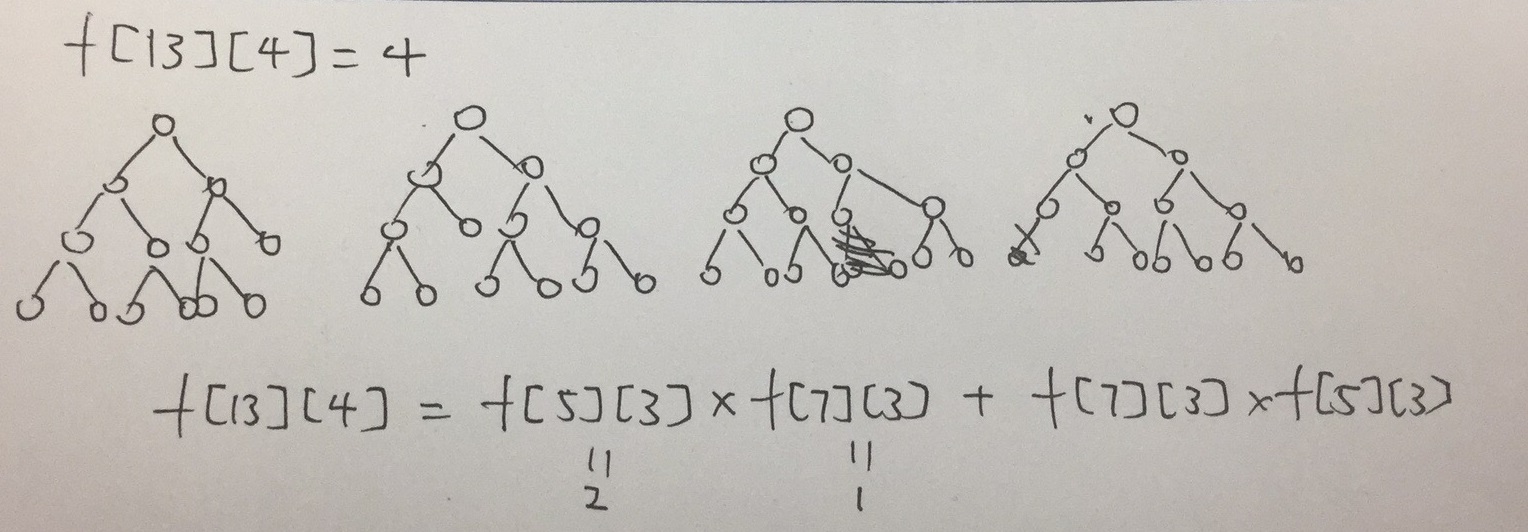 f[13][4] = 4
f[13][4] = f[5][3] × f[7][3] + f[7][3] × f[5][3]
|| ||
2 1